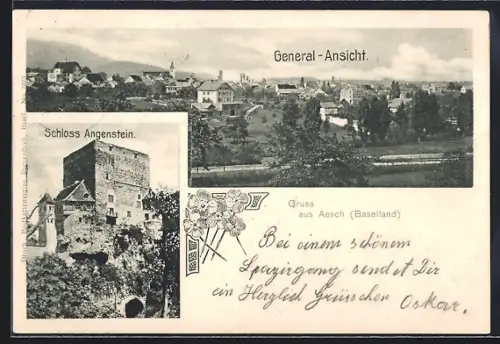 General-Ansicht.
Schloss Angenstein.
Gruss
aus Aesch (Baselland)
Bei einem schönem
Spazirgang sendet Dir
ein Herzlich Grüsschen Oskar.